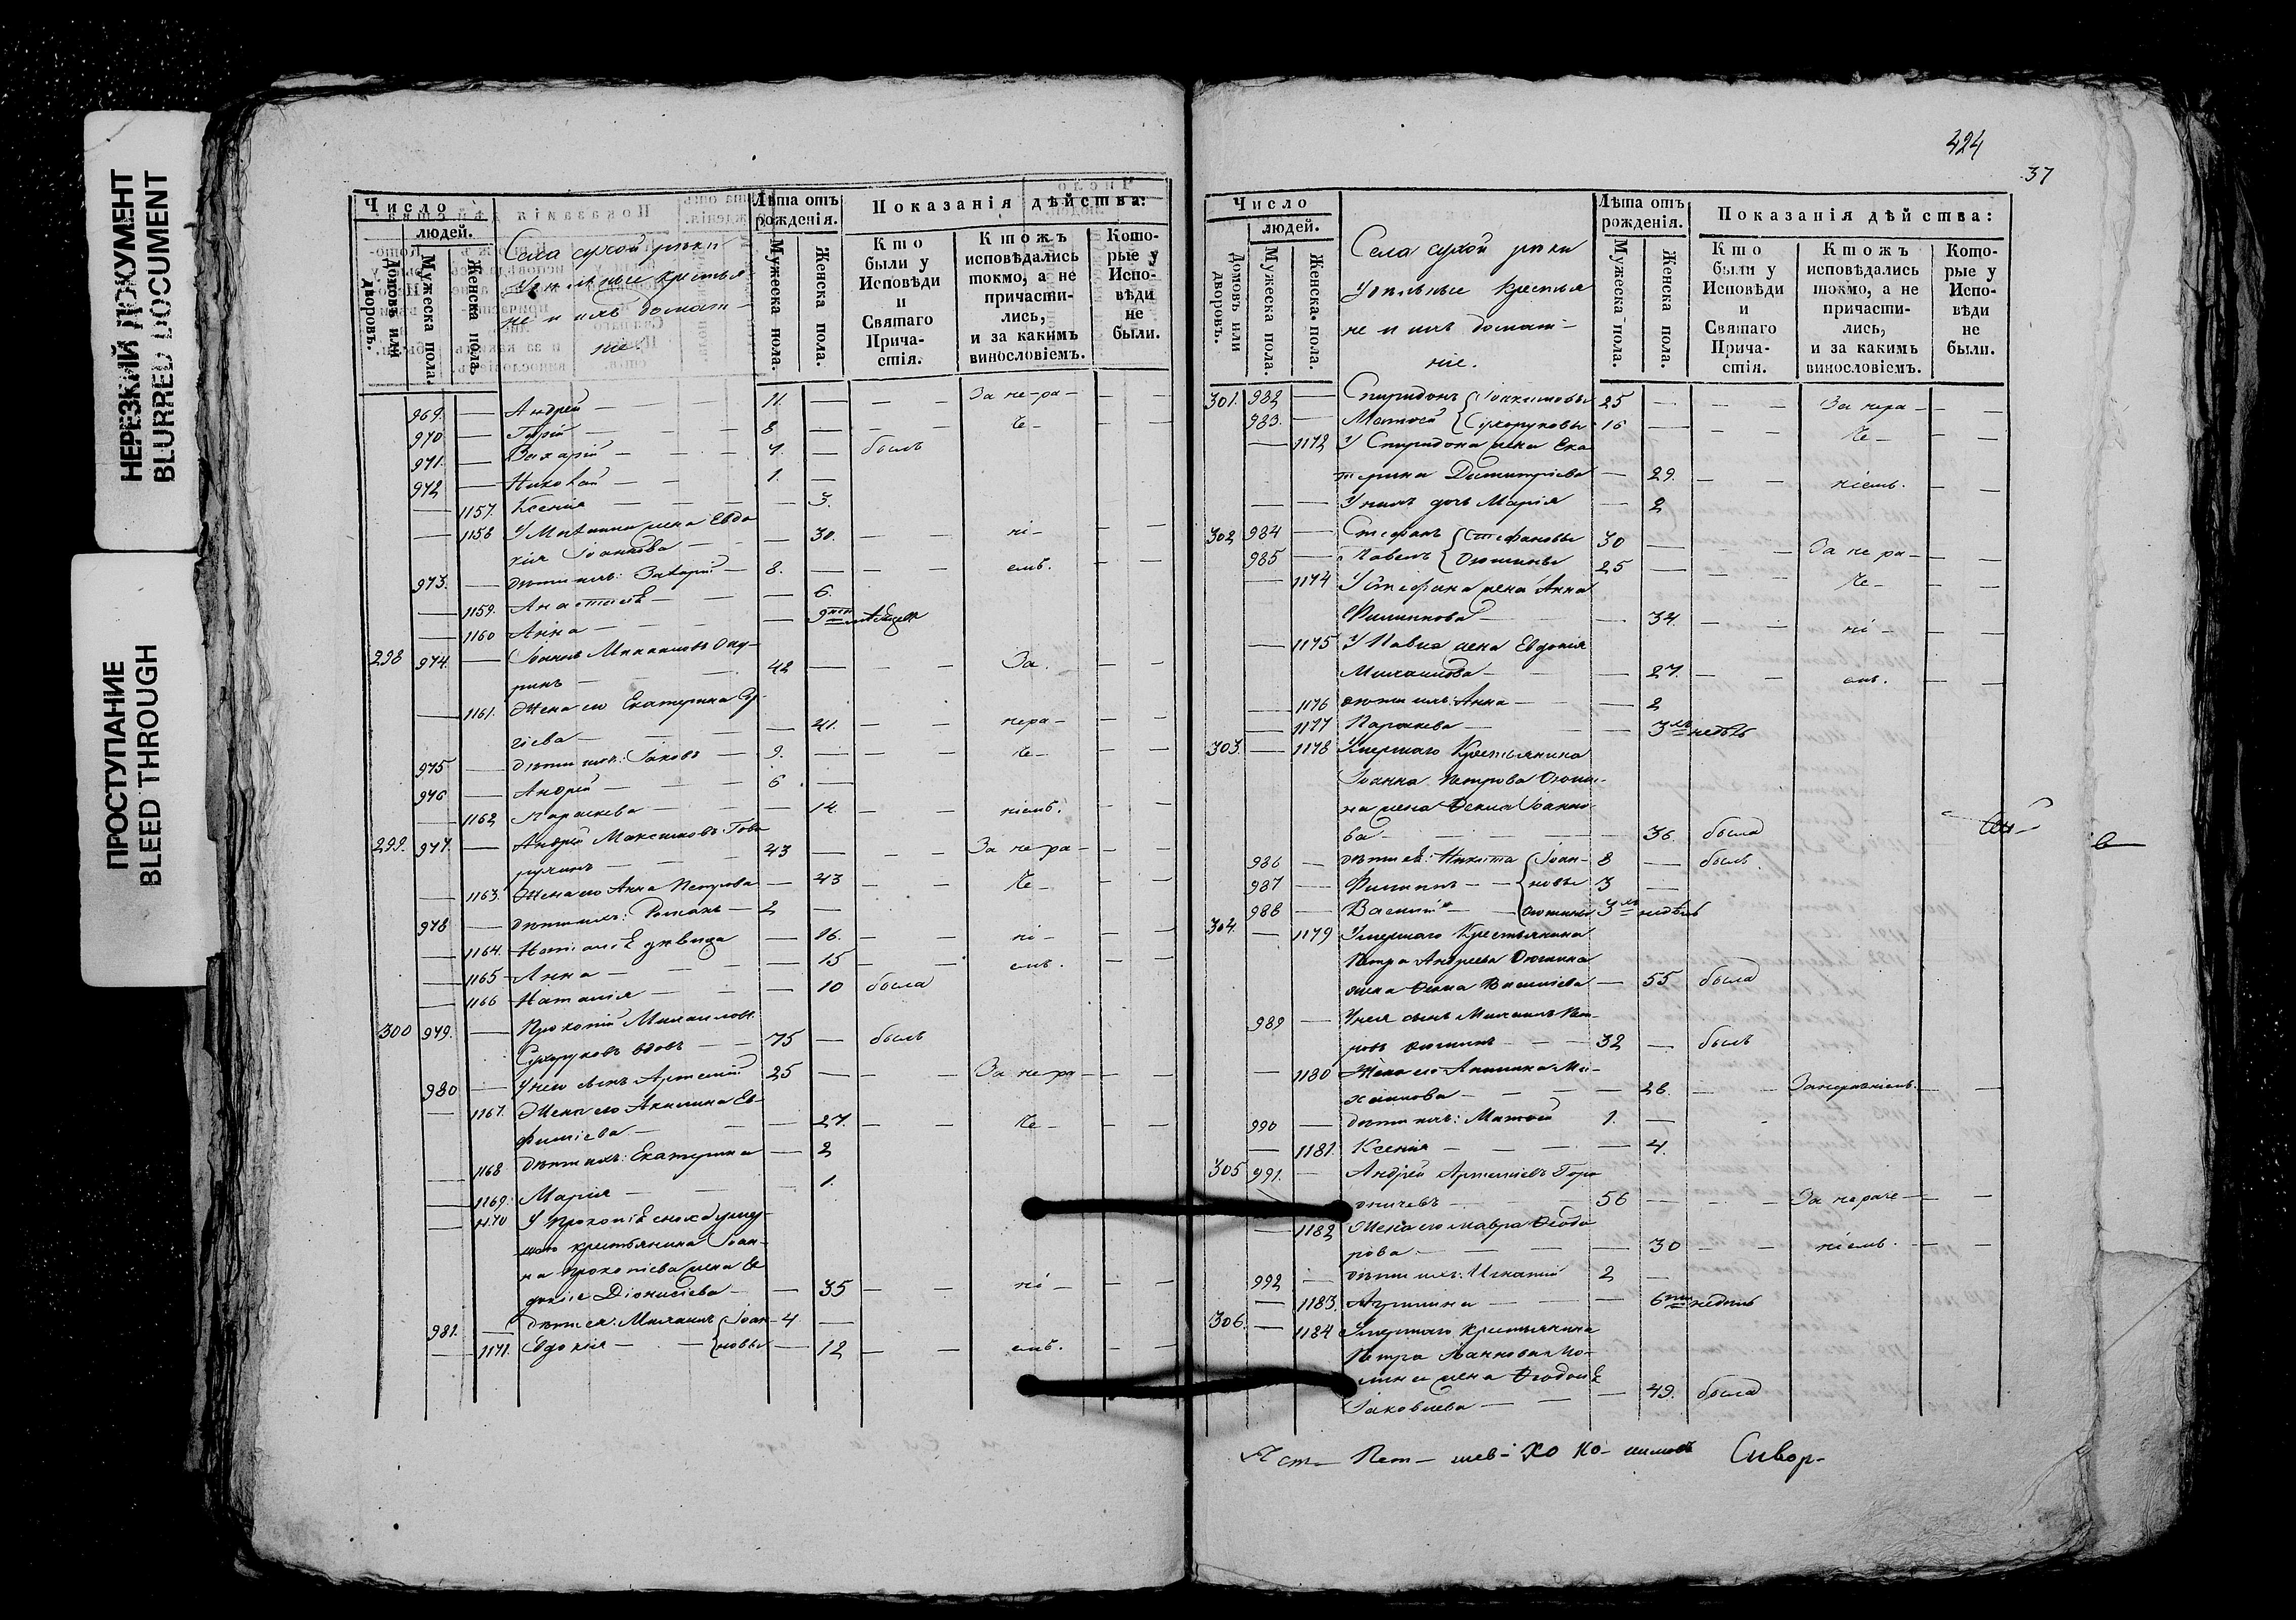 НЕРЕЗКИЙ ДОКУМЕНТ
BLURRED DOCUMENT
ПРОСТУПАНИЕ
BLEED THROUGH
Число
людей.
Домовъ или дворовъ.
Мужеска пола.
Женска пола.
Села сухой рѣки
удѣльные крестья
не и ихъ домаш-
ніе.
Лѣта отъ рожденія.
Мужеска пола.
Женска пола.
Показанія дѣйства:
Кто были у Исповѣди и Святаго Прича-стія.
Ктожъ исповѣдались токмо, а не причасти-лись, и за какимъ винословіемъ.
Кото-рые у Испо-вѣди не были.
969. Андрей 11. За не-ра-
970 8. че-
971. Захарій 4. былъ
972 Николай 1.
1157. Ксенія 3.
1158 жена Евдо
кія Іоаннова 30. ні-
973. дѣти ихъ: 8. емъ.
1159. Анастасія 6.
1160 Анна 9
298 974. Іоаннъ
42 За.
1161. Жена его Екатерина
гіева 41. нера-
975 дѣти ихъ: Іаковъ 9. че-
976 Андрей 6
1162 Параскева 14. ніемъ.
299. 977. Андрей Максимовъ
43 За не ра-
1163. Жена его Анна Петрова 43 че-
978 дѣти ихъ: Романъ 2
1164. дѣвица 16. ні-
1165 Анна 15 емъ.
1166 Наталія 10 была
300 979. Прокопій Михаиловъ
Сухоруковъ вдовъ 75 былъ
980 У него сынъ Артемій 25 За не-ра
1167. Жена его Акилина Ев-
фиміева 27. че-
1168 дѣти ихъ: Екатерина 2
1169. Марія 1.
1170 У Прокопія сноха умер-
шаго крестьянина Іоан-
на Прокопіева жена Ев
докія Діонисіева 35 ні-
981. дѣти ея: Михаилъ Іоан- 4
1171. Евдокія новы 12 емъ.
424
37
Число
людей.
Домовъ или дворовъ.
Мужеска пола.
Женска пола.
Села сухой рѣки
удѣльные крестья
не и ихъ домаш-
ніе.
Лѣта отъ рожденія.
Мужеска пола.
Женска пола.
Показанія дѣйства:
Кто были у Исповѣди и Святаго Прича-стія.
Ктожъ исповѣдались токмо, а не причасти-лись, и за какимъ винословіемъ.
Кото-рые у Испо-вѣди не были.
301. 982 Спиридонъ Іоакимовы 25 За нера-
983. Матѳей Сухоруковы 16 че-
1172 У Спиридона жена Ека
терина Димитріева 29. ніемъ.
У нихъ дочь Марія 2
302 984 Стефанъ Стефановы 30 За не ра-
985 Павелъ Дюжины 25 че-
1174 У Стефана жена Анна
Филиппова 34. ні-
1175 У Павла жена Евдокія
Михаилова 27. емъ.
1176 дѣти ихъ: Анна 2
1177 Параскева 3 недѣль
303. 1178 Умершаго Крестьянина
Іоанна Петрова Дюжи-
на жена Ѳекла Іоанно
ва 36. была
986 дѣти ея: Никита Іоан- 8 былъ
987 Филиппъ новы 3
988 Василій Дюжины 3 недѣль
304. 1179 Умершаго Крестьянина
Петра Андреева Дюжина
жена Ѳекла Василіева 55 была
989 У нея сынъ Михаилъ Пет-
ровъ Дюжинъ 32 былъ
1180 Жена его Акилина Ми-
хаилова 26. За нерачніемъ.
990 дѣти ихъ: Матѳей 1.
1181. Ксенія 4.
305 991. Андрей Артеміевъ
56 За нераче-
1182 Жена его Мавра Ѳеодо
рова 30 ніемъ.
992 дѣти ихъ: Игнатій 2
1183. 6 недѣль
306. 1184 Умершаго крестьянина
Петра Іоаннова
жена Ѳеодосія
Іаковлева 49. была